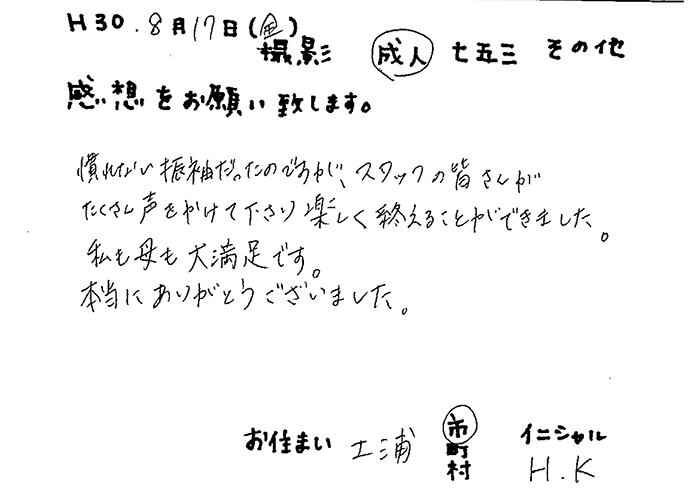 H30.8月17日(金)
撮影 成人 七五三 その他
感想をお願い致します。
慣れない振袖だったのですが、スタッフの皆さんが
たくさん声をかけて下さり楽しく終えることができました。
私も母も大満足です。
本当にありがとうございました。
お住まい 土浦 市町村 イニシャル
H.K